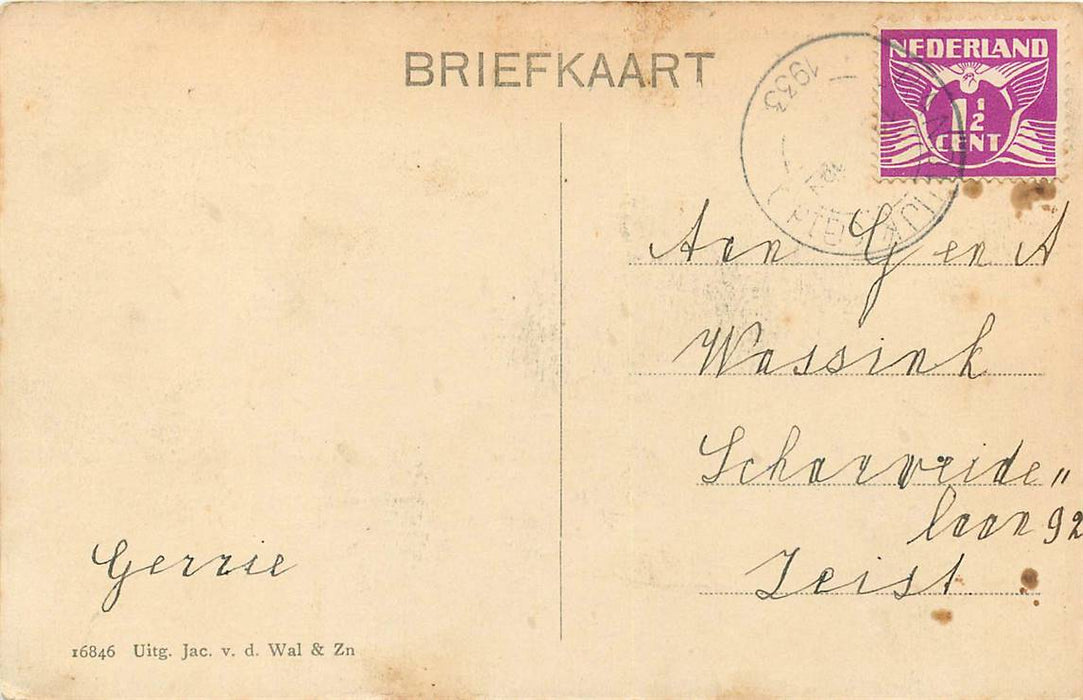 BRIEFKAART
NEDERLAND
1½
CENT
1933
Aan Gen A
Wassink
Scharweide„
laan 92
Zeist.
Gerrie
16846 Uitg. Jac. v. d. Wal & Zn